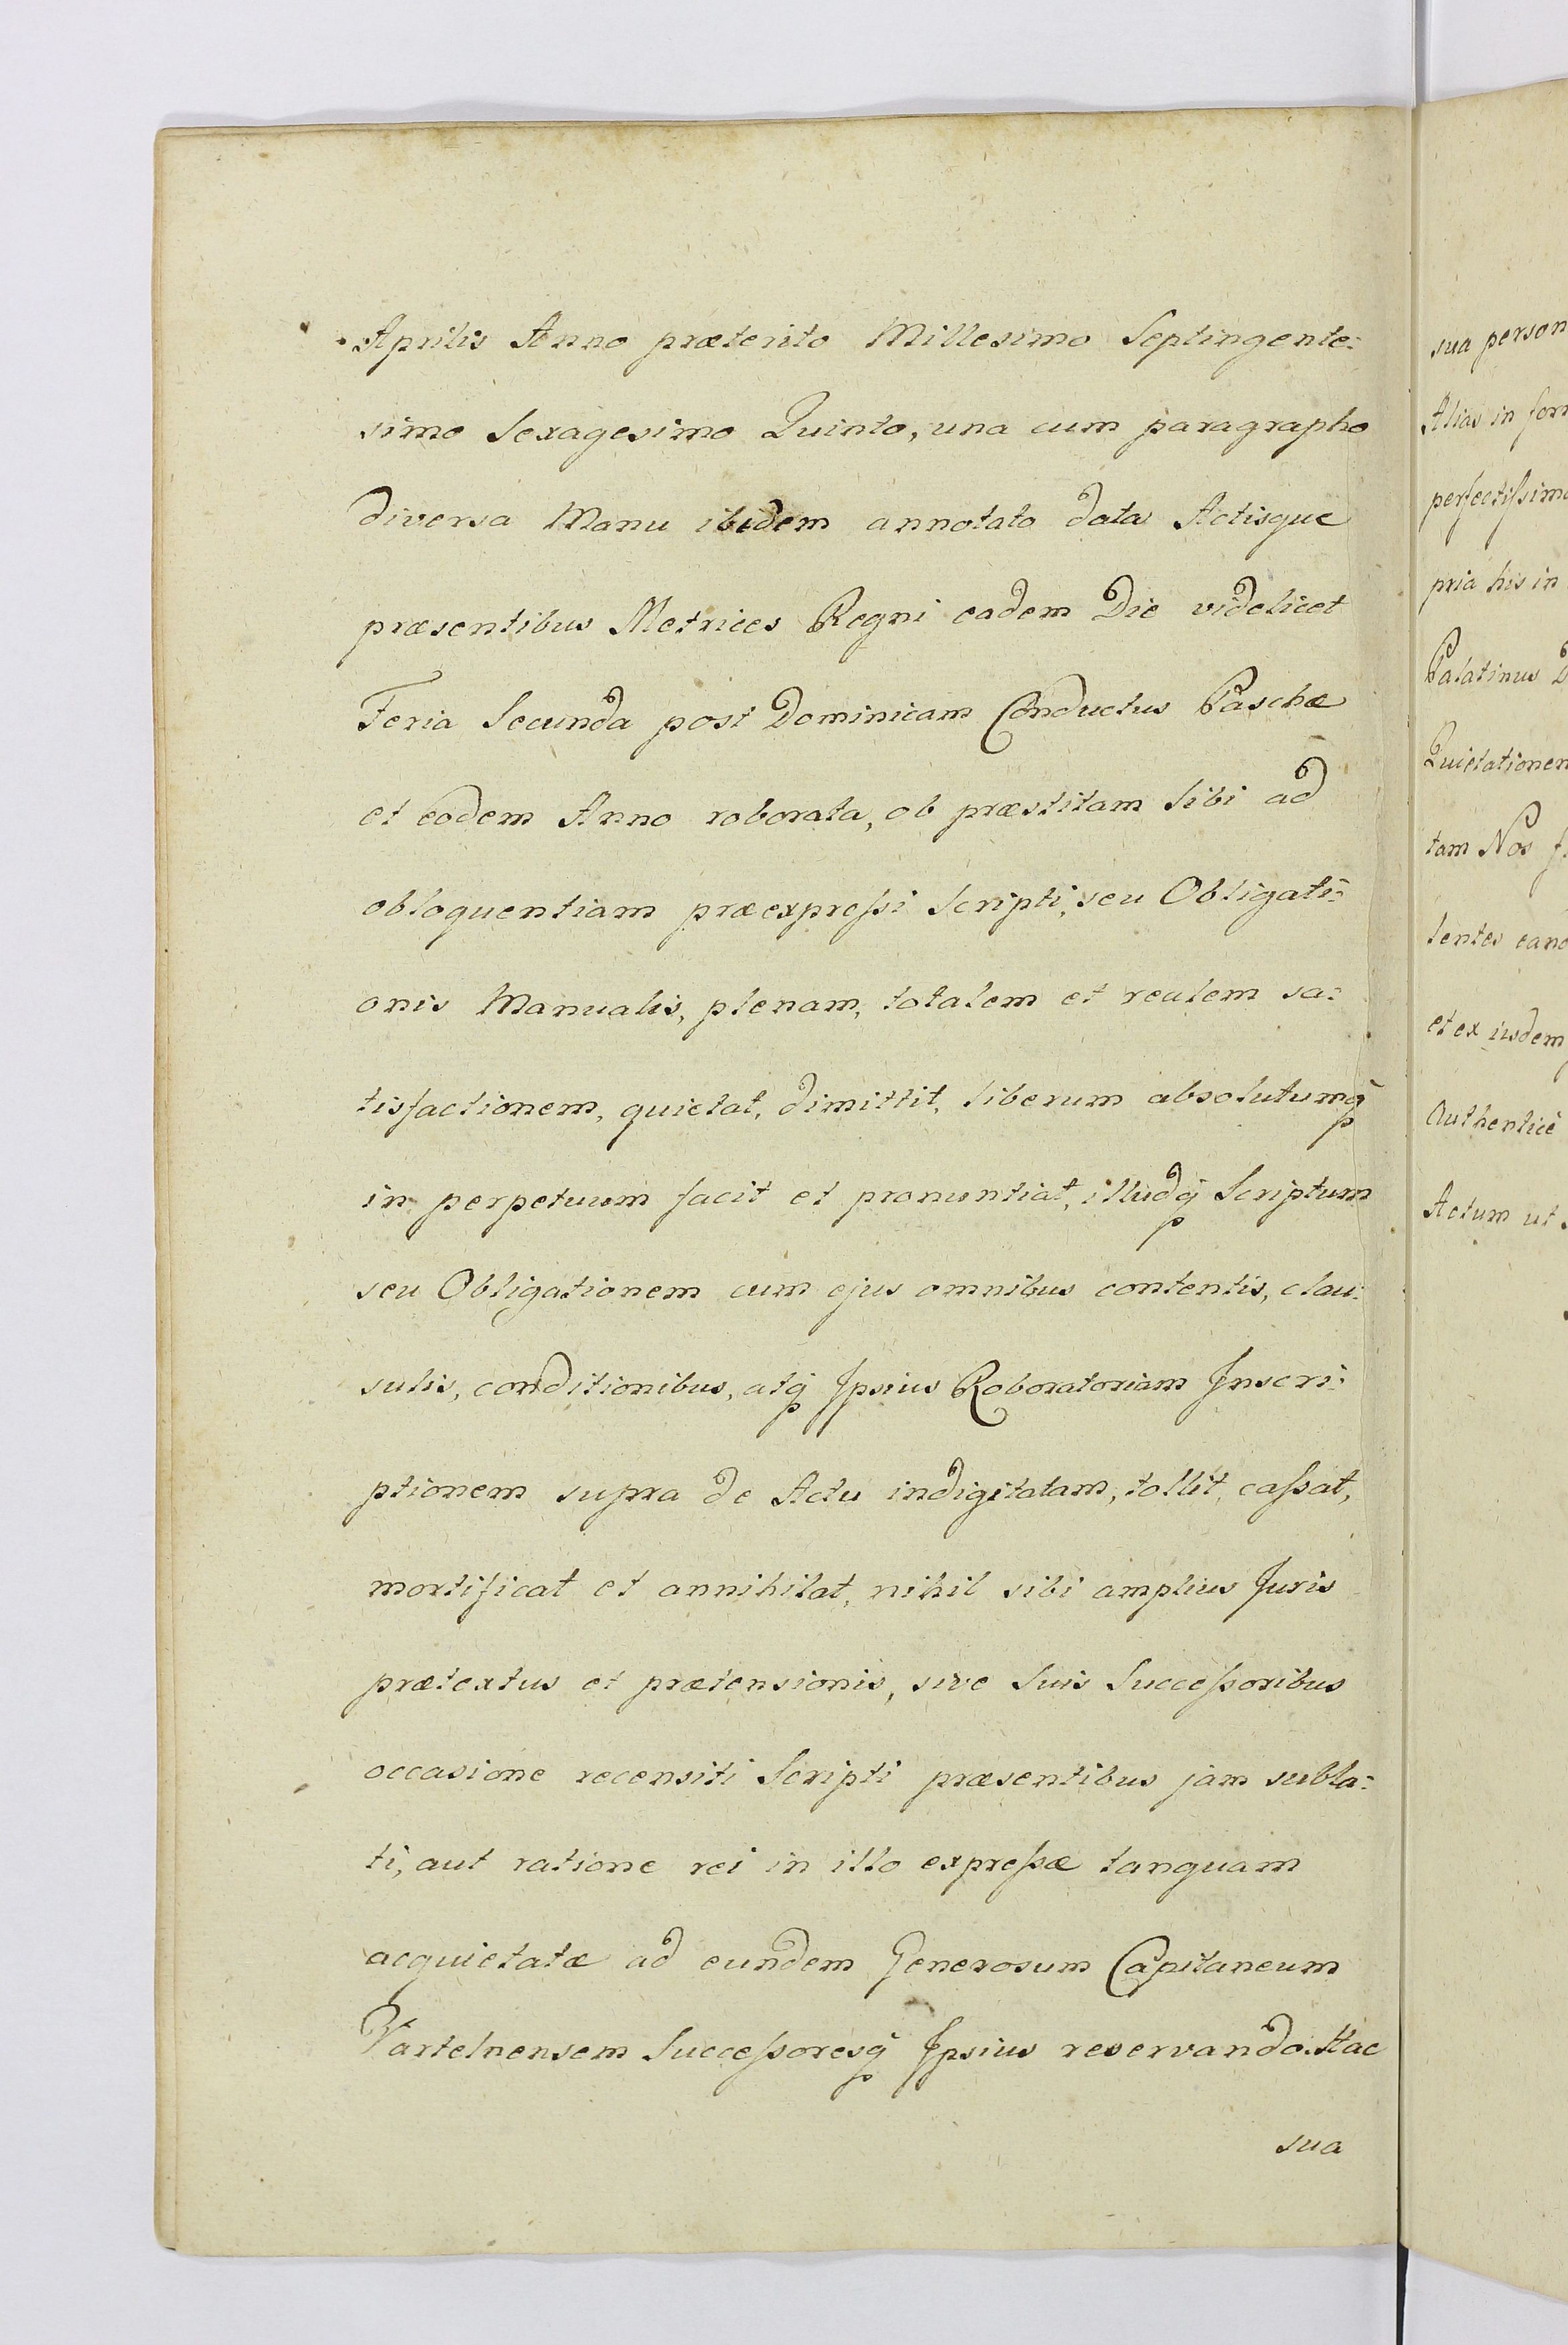 Aprilis Anno præterito Millesimo Septingente:
simo Sexagesimo Quinto, una cum paragrapho
diversa Manu ibidem annotato data Actisque
præsentibus Metrices Regni eadem Die videlicet
Feria Secunda post Dominicam Conductus Paschæ
et eodem Anno roborata, ob præstitam sibi ad
obloquentiam præexpreſsi Scripti, seu Obligati:
onis Manualis, plenam, totalem et realem sa:
tisfactionem, quietat, dimittit, liberum absolutumq̃
in perpetuum facit et pronuntiat, illudq̃ Scriptum
seu Obligationem cum ejus omnibus contentis, clau:
sulis, conditionibus, atq̃ Ipsius Roboratoriam Inscri:
ptionem supra de Actu indigitatam, tollit, caſsat,
mortificat et annihilat, nihil sibi amplius Juris
prætextus et prætensionis, sive Suis Succeſsoribus
occasione recensiti Scripti præsentibus jam subla:
ti, aut ratione rei in illo expreſsæ tanquam
acquietatæ ad eundem Generosum Capitaneum
Succeſsoresq̃ Ipsius reservando. Hac
sua
sua person
Alias in for
perfectiſsim
pria his in
Palatinus D
Quietationem
tam Nos
tentes
et ex iisdem
Authenticè
Actum ut